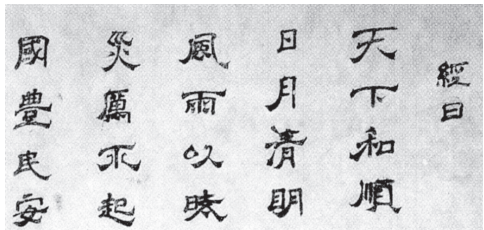 經曰
天下和順
日月清明
風雨以時
災厲不起
國豊民安